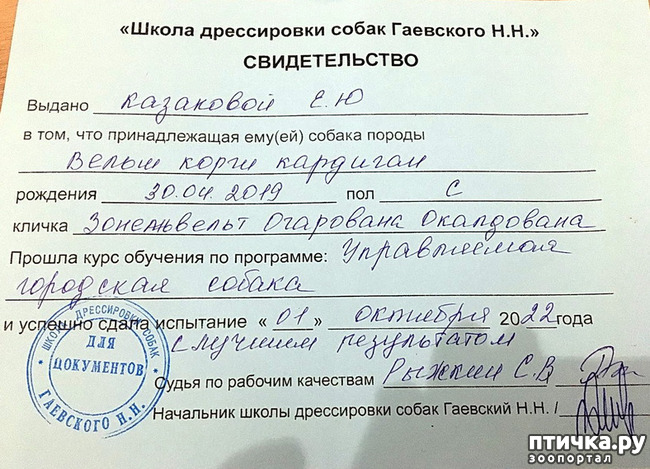 «Школа дрессировки собак Гаевского Н.Н.»
СВИДЕТЕЛЬСТВО
Выдано Казаковой Е.Ю
в том, что принадлежащая ему(ей) собака породы
Вельш корги кардиган
рождения 30.04.2019 пол С
кличка Зоненвельт Очарована Околдована
Прошла курс обучения по программе: Управляемая
городская собака
и успешно сдала испытание «01» октября 2022года
с лучшим результатом
Судья по рабочим качествам Рыжкин С.В
Начальник школы дрессировки собак Гаевский Н.Н. /
ШКОЛА ДРЕССИРОВКИ СОБАК
ДЛЯ
ДОКУМЕНТОВ
ГАЕВСКОГО Н.Н.
птичка.ру
зоопортал